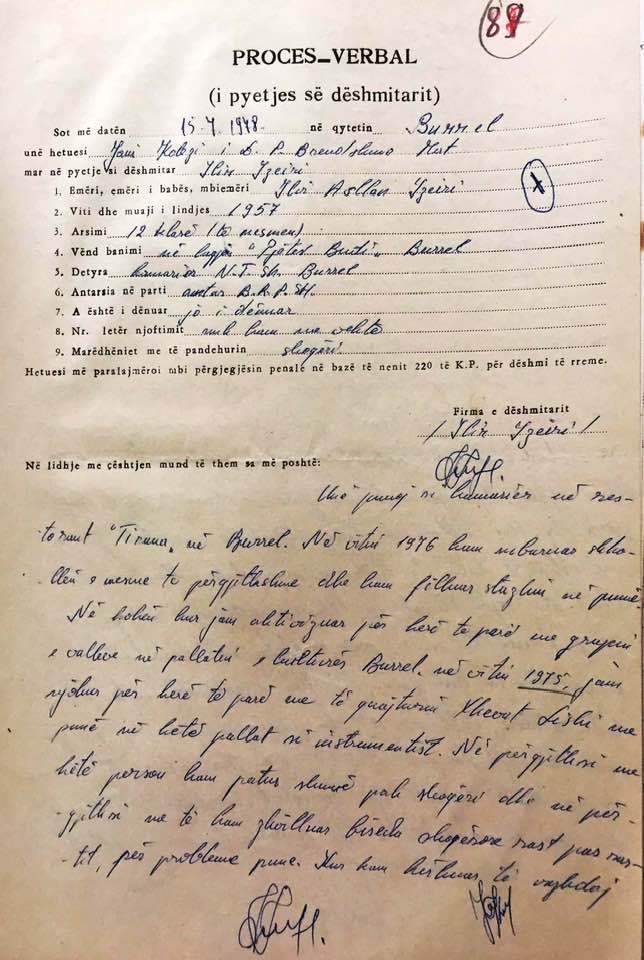 89
PROCES-VERBAL
(i pyetjes së dëshmitarit)
Sot më datën 15.7.1978. në qytetin Burrel
unë hetuesi Jani Kolozi i D. P. Brendshme Mat
mar në pyetje si dëshmitar Ilir Izeiri
1. Emëri, emëri i babës, mbiemëri Ilir Asllan Izeiri
2. Viti dhe muaji i lindjes 1957
3. Arsimi 12 klasë (të mesmen)
4. Vënd banimi në lagjen " " Burrel
5. Detyra kamarier N.T.Sh. Burrel
6. Antarsia në parti antar B.R.P.SH.
7. A është i dënuar jo i dënuar
8. Nr. letër njoftimit nuk kam me vehte
9. Marëdhëniet me të pandehurin shoqëri
Hetuesi më paralajmëroi mbi përgjegjësin penale në bazë të nenit 220 të K.P. për dëshmi të rreme.
Firma e dëshmitarit
/ Ilir Izeiri /
Në lidhje me çështjen mund të them sa më poshtë:
Unë punoj si kamarier në res-
torant "Tirana" në Burrel. Në vitin 1976 kam mbaruar shko-
llën e mesme të përgjithshme dhe kam filluar stazhin në punë.
Në kohën kur jam aktivizuar për herë të parë me grupin
e valleve në pallatin e kulturës Burrel. në vitin 1975, jam
njohur për herë të parë me të quajturin Xhevat Lishi me
punë në këtë pallat si instrumentist. Në përgjithsi me
këtë person kam patur shumë pak shoqëri dhe në për-
gjithsi me të kam zhvilluar biseda shoqërore rast pas ras-
tit, për probleme pune. Kur kam kërkuar të